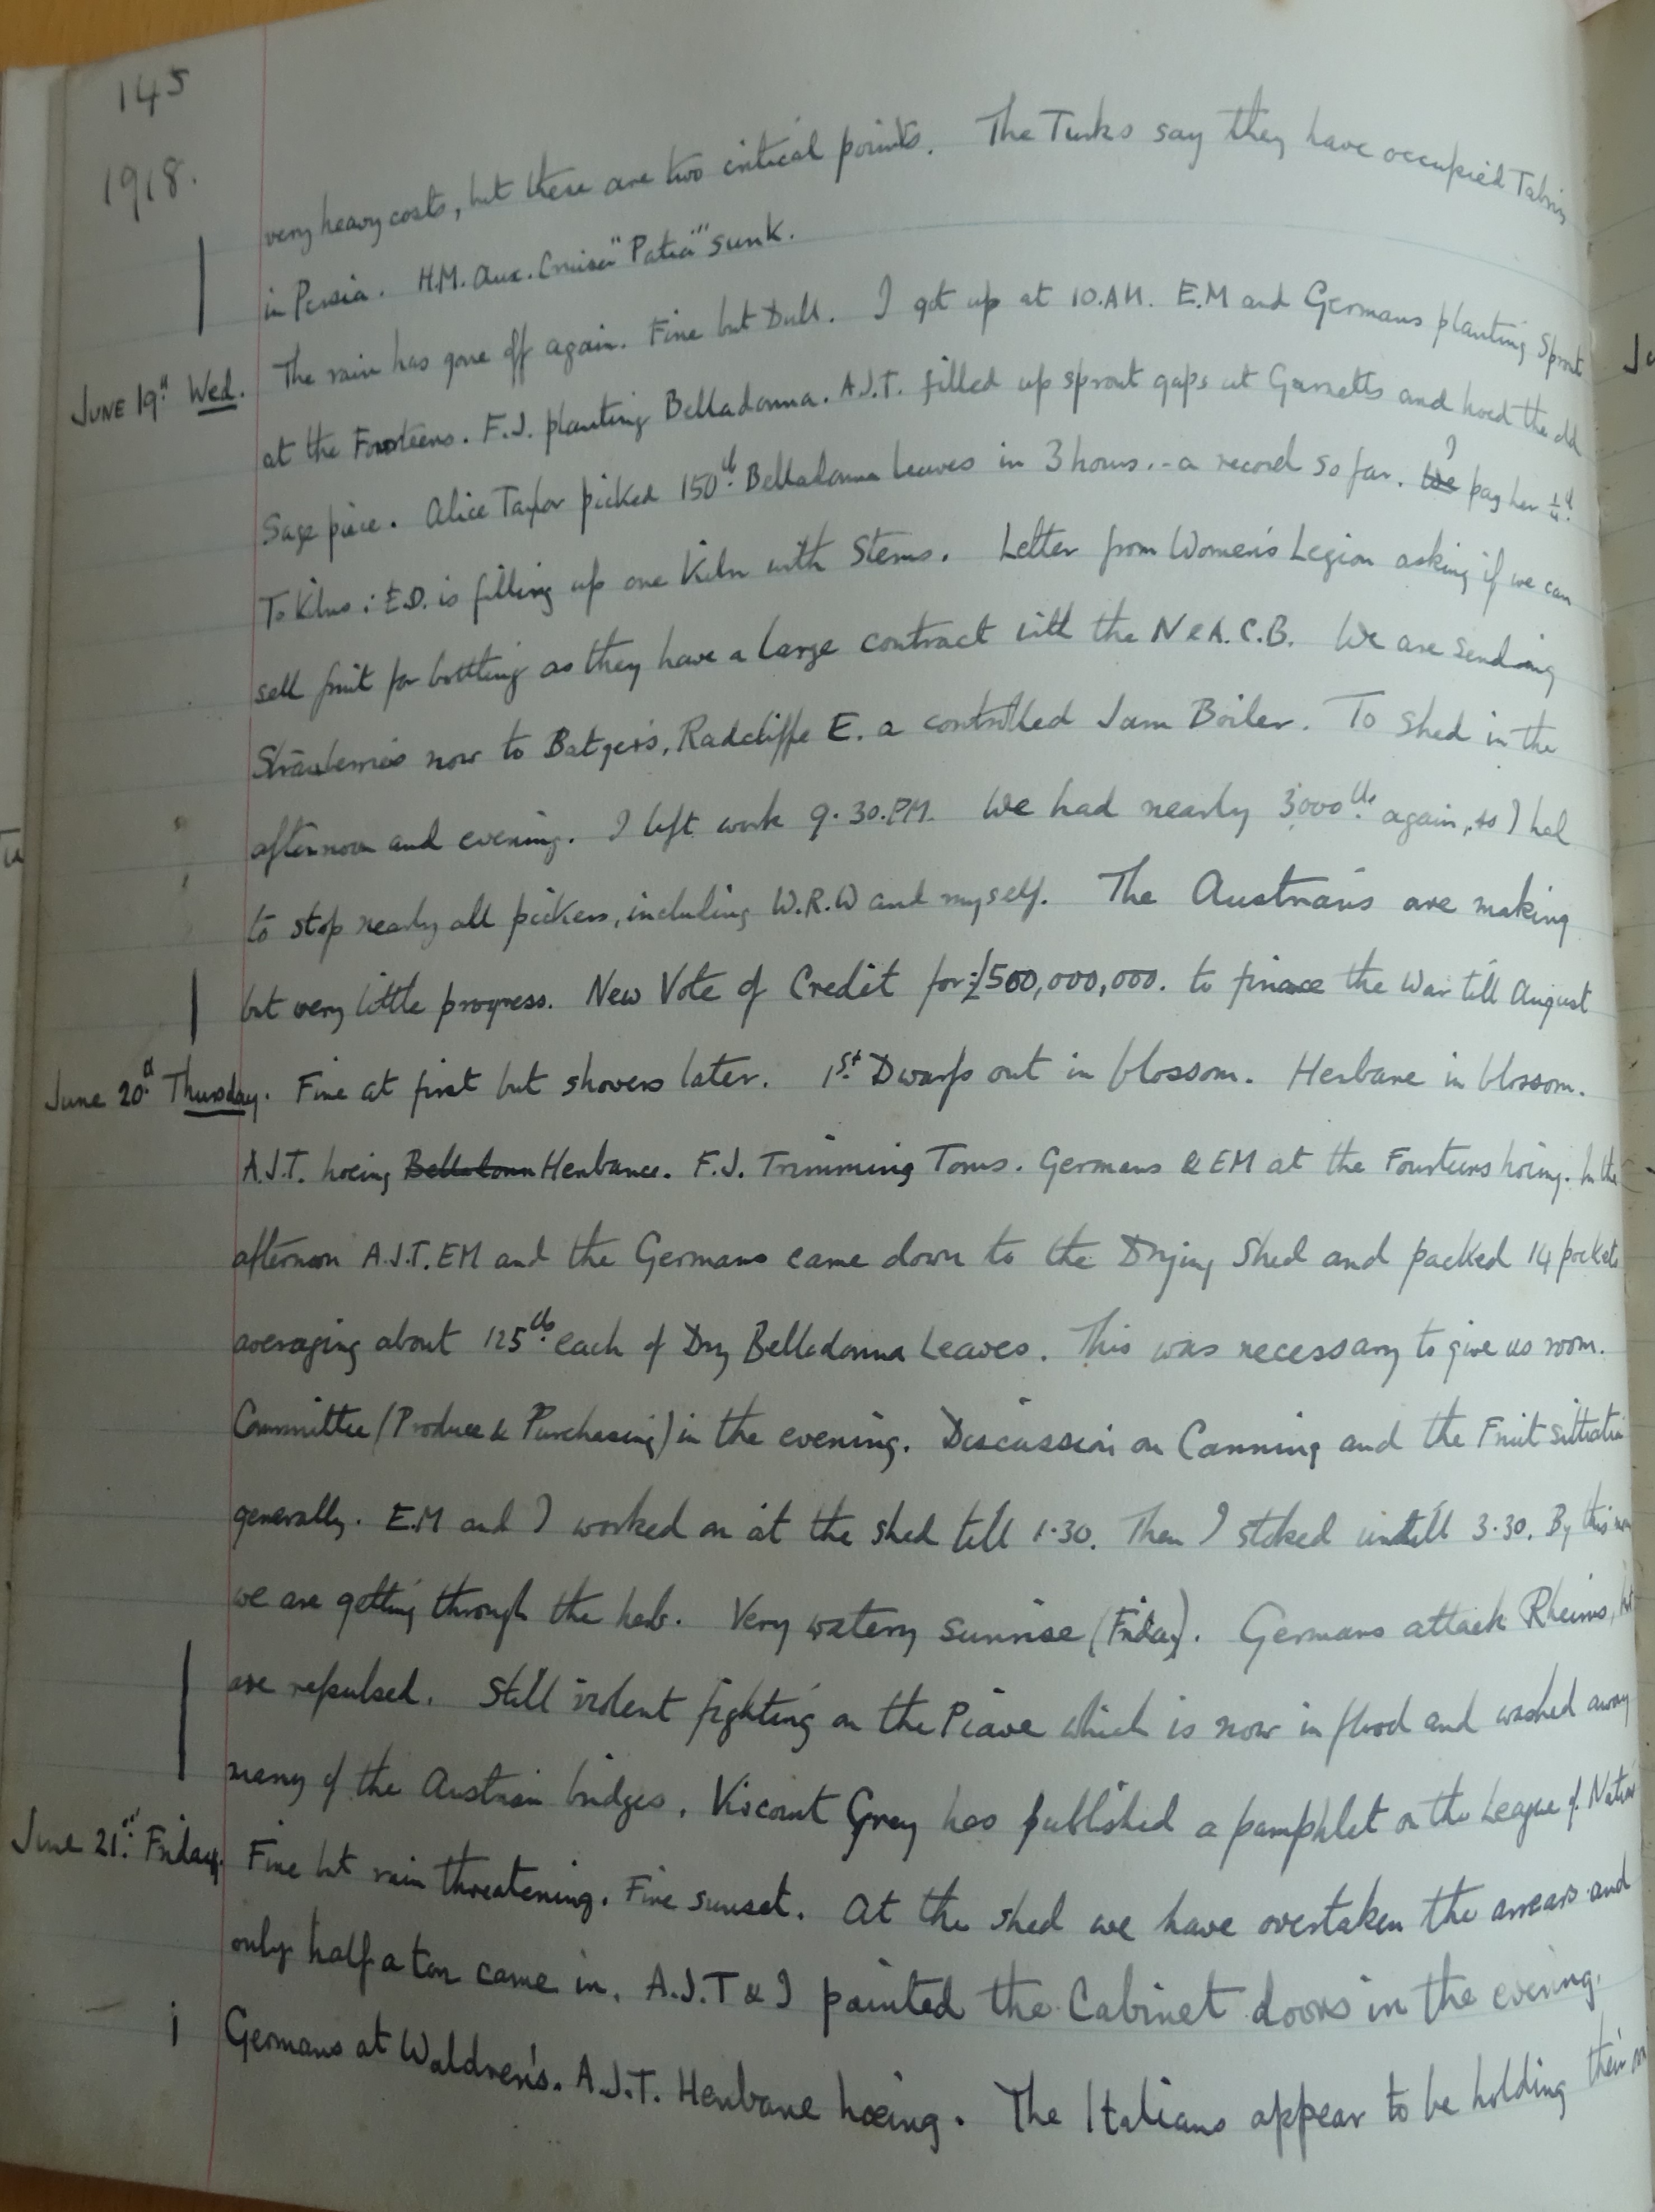 145
1918.
very heavy costs, but these are two critical points. The Turks say they have occupied Tabriz
in Persia. H.M. Aux. Cruiser "Patia" sunk.
June 19th Wed. The rain has gone off again. Fine but Dull. I got up at 10.AM. E.M and Germans planting Sprout
at the Fourteens. F.J. planting Belladonna. A.J.T. filled up sprout gaps at Garnetts and hoed the old
Sage piece. Alice Taylor picked 150lb Belladonna Leaves in 3 hours. - a record so far. We I pay her ¼d.
To Kilns: E.D. is filling up one Kiln with Stems. Letter from Women's Legion asking if we can
sell fruit for bottling as they have a large contract with the N & A.C.B. We are sending
Strawberries now to Batger's, Radcliffe E. a controlled Jam Boiler. To Shed in the
afternoon and evening. I left work 9.30.PM. We had nearly 3,000lbs. again, so I had
to stop nearly all pickers, including W.R.W and myself. The Austrians are making
but very little progress. New Vote of Credit for £500,000,000. to finance the War till August
June 20th Thursday. Fine at first but showers later. 1st. Dwarfs out in blossom. Henbane in blossom.
A.J.T. hoeing Belladonna Henbane. F.J. Trimming Toms. Germans & EM at the Fourteens hoeing. In the
afternoon A.J.T. EM and the Germans came down to the Drying Shed and packed 14 pockets
averaging about 125lb. each of Dry Belladonna Leaves. This was necessary to give us room.
Committee (Produce & Purchasing) in the evening. Discussion on Canning and the Fruit situation
generally. E.M and I worked on at the shed till 1.30. Then I stoked untill 3.30. By this
we are getting through the herb. Very watery sunrise (Friday). Germans attack Rheims, but
are repulsed. Still violent fighting on the Piave which is now in flood and washed away
many of the Austrian bridges. Viscount Grey has published a pamphlet on the League of Nations
June 21st. Friday. Fine but rain threatening. Fine sunset. At the shed we have overtaken the arrears and
only half a ton came in. A.J.T & I painted the Cabinet doors in the evening.
Germans at Waldren's. A.J.T. Henbane hoeing. The Italians appear to be holding their